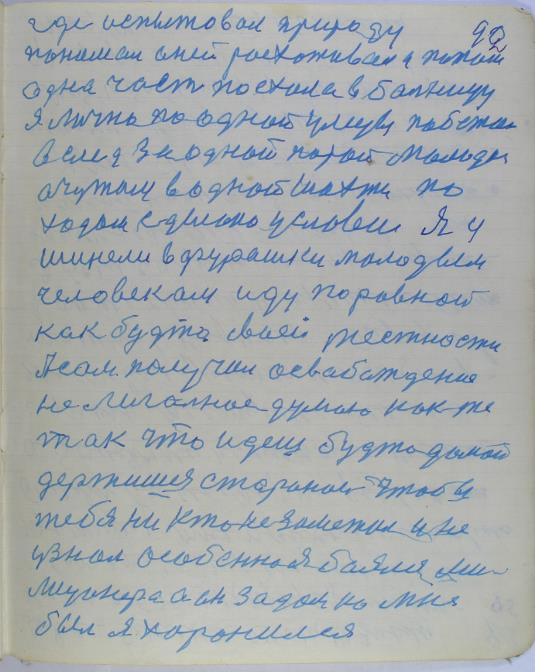 где испытовал природу 92
понимал с ней росхоживал и потом
одна часть посхала в балницу
я лично по одной улицы побежал
в след за одной парой молоды
очутом в одной по
ходам сделано условеи Я у
шинели в фурашки молодым
человекам иду поровной
как будто своей местности
Я сам получил освабаждение
не лигалное думаю как же
так что идеш будто домой
держишся стараной чтобы
тебя ни кто не заметил и не
узнал особенно я баялся ми
лицонера а он задом ко мне
был я харонился